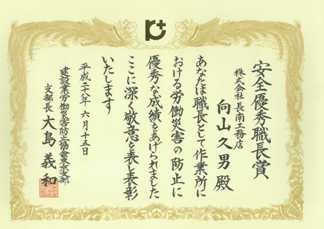 安全優秀職長賞
株式会社 長南工務店
向山久男 殿
あなたは職長として作業所に
おける労働災害の防止に
優秀な成績をあげられました
ここに深く敬意を表し表彰
いたします
平成二十八年 六月十五日
建設業労働災害防止協会東京支部
支部長 大島義和